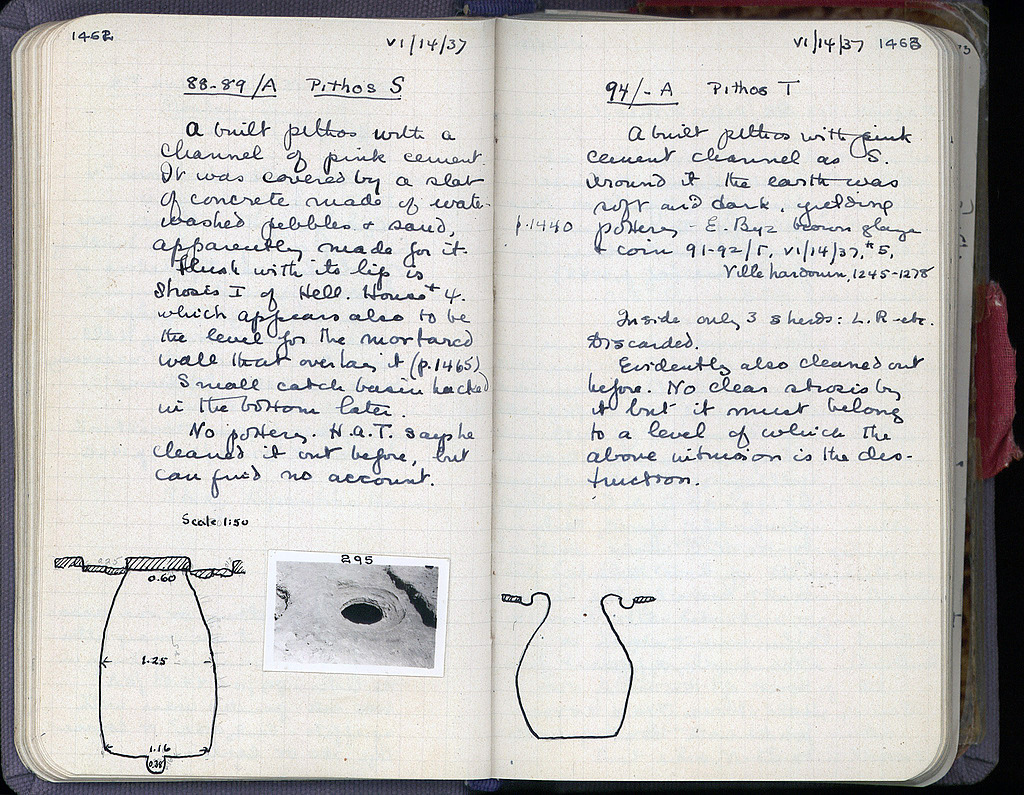 1462
VI/14/37
88-89/A Pithos S
A built pithos with a
channel of pink cement.
It was covered by a slab
of concrete made of water-
washed pebbles & sand,
apparently made for it.
Flush with its lip is
Strosis I of Hell. House #4.
which appears also to be
the level for the mortared
wall that overlay it (p.1465)
Small catch basin hacked
in the bottom later.
No pottery. H.A.T. says he
cleaned it out before, but
can find no account.
Scale 1:50
0.60
1.25
1.16
0.38
295
VI/14/37 1463
94/-A Pithos T
A built pithos with pink
cement channel as S.
Around it the earth was
soft and dark, yielding
p.1440 pottery - E. Byz brown glaze
& coin 91-92/Γ, VI/14/37, #5,
Villehardouin, 1245-1278
Inside only 3 sherds: L.R. etc.
Discarded.
Evidently also cleaned out
before. No clear strosis by
it but it must belong
to a level of which the
above intrusion is the des-
truction.